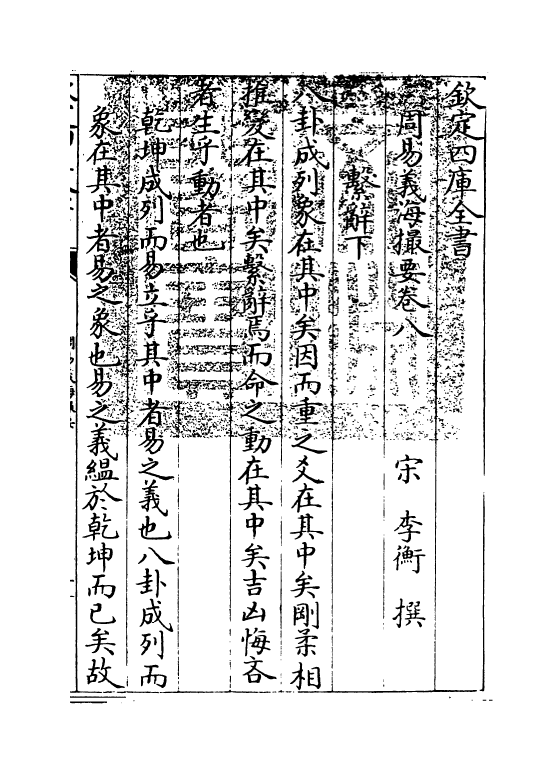 欽定四庫全書
周易義海撮要卷八
宋 李衡 撰
繫辭下
八卦成列象在其中矣因而重之爻在其中矣剛柔相
推變在其中矣繫辭焉而命之動在其中矣吉凶悔吝
者生乎動者也
乾坤成列而易立乎其中者易之義也八卦成列而
象在其中者易之象也易之義緼於乾坤而已矣故